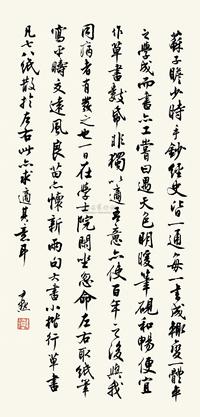 蘇子瞻少時手鈔經史皆一通每一書成輒變一體卒
之學成而書亦工嘗曰遇天色明暖筆硯和暢便宜
作草書數紙非獨以適吾意亦使百年之後與我
同病者有發之也一日在學士院閒坐忽命左右取紙筆
寫平時交遠風良苗亦懷新兩句大書小楷行草書
凡七八紙散於左右此亦求適其意耳
尹默